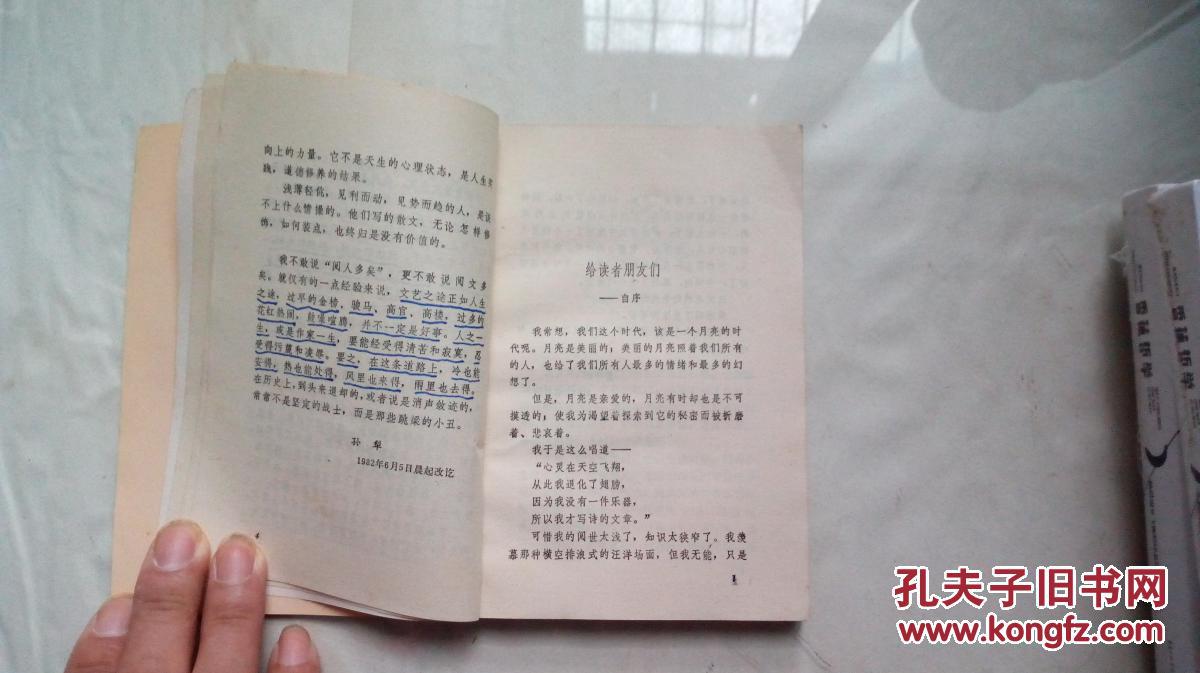 向上的力量。它不是天生的心理状态，是人生实
践，道德修养的结果。
浅薄轻佻，见利而动，见势而趋的人，是谈
不上什么情操的。他们写的散文，无论怎样修
饰，如何装点，也终归是没有价值的。
我不敢说“阅人多矣”，更不敢说阅文多
矣。就仅有的一点经验来说，文艺之途正如人生
之途，过早的金榜、骏马、高官、高楼，过多的
花红热闹，鼓噪喧腾，并不一定是好事。人之一
生，或是作家一生，要能经受得清苦和寂寞，忍
受得污蔑和凌辱。要之，在这条道路上，冷也能
安得，热也能处得，风里也来得，雨里也去得。
在历史上，到头来退却的，或者说是消声敛迹的，
常常不是坚定的战士，而是那些跳梁的小丑。
孙 犁
1982年6月5日晨起改讫
4
给读者朋友们
——自序
我常想，我们这个时代，该是一个月亮的时
代呢。月亮是美丽的；美丽的月亮照着我们所有
的人，也给了我们所有人最多的情绪和最多的幻
想了。
但是，月亮是亲爱的，月亮有时却也是不可
摸透的；使我为渴望着探索到它的秘密而被折磨
着、悲哀着。
我于是这么唱道——
“心灵在天空飞翔，
从此我退化了翅膀，
因为我没有一件乐器，
所以我才写诗的文章。”
可惜我的阅世太浅了，知识太狭窄了。我羡
慕那种横空排浪式的汪洋场面，但我无能，只是
1
孔夫子旧书网
www.kongfz.com